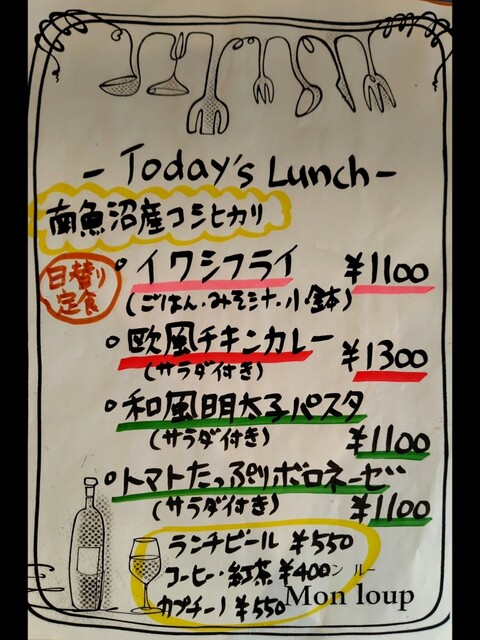 - Today's Lunch -
南魚沼産コシヒカリ
日替り
定食
・イワシフライ ¥1100
(ごはん・みそ汁・小鉢)
・欧風チキンカレー ¥1300
(サラダ付き)
・和風明太子パスタ ¥1100
(サラダ付き)
・トマトたっぷりボロネーゼ ¥1100
(サラダ付き)
ランチビール ¥550
コーヒー・紅茶 ¥400
カプチーノ ¥550
ン ルー
Mon loup